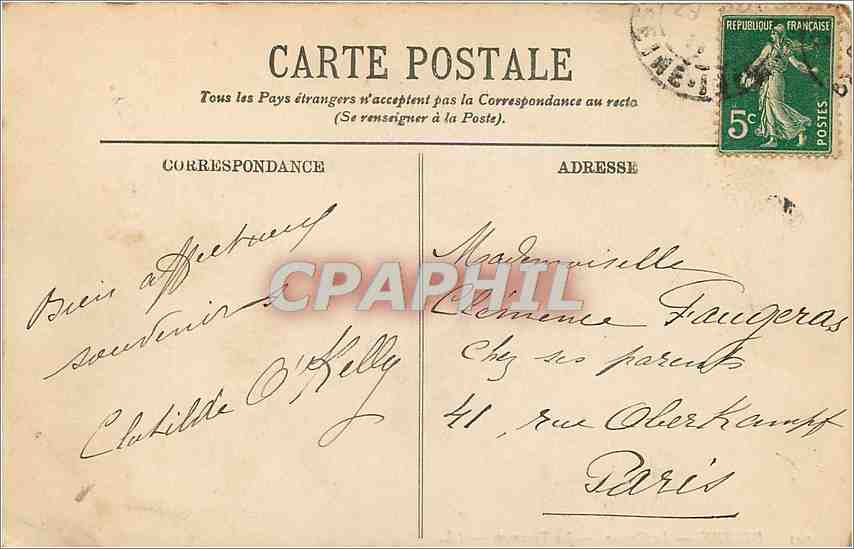 CARTE POSTALE
Tous les Pays étrangers n'acceptent pas la Correspondance au recto
(Se renseigner à la Poste).
REPUBLIQUE FRANÇAISE
5c
POSTES
CORRESPONDANCE
ADRESSE
Bien affectueux
souvenirs
Clotilde O'Kelly
CPAPHIL
Mademoiselle
Clémence Faugeras
Chez ses parents
41, rue Oberkampf
Paris